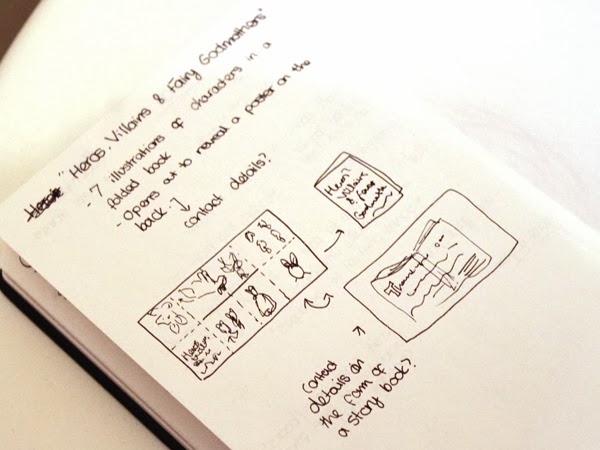 "Heros, Villains & Fairy Godmothers"
- 7 illustrations of characters in a
folded book
- Opens out to reveal a poster on the
back ↓
contact details?
Heros
Villains
&
contact
details on
the form of
a story book?